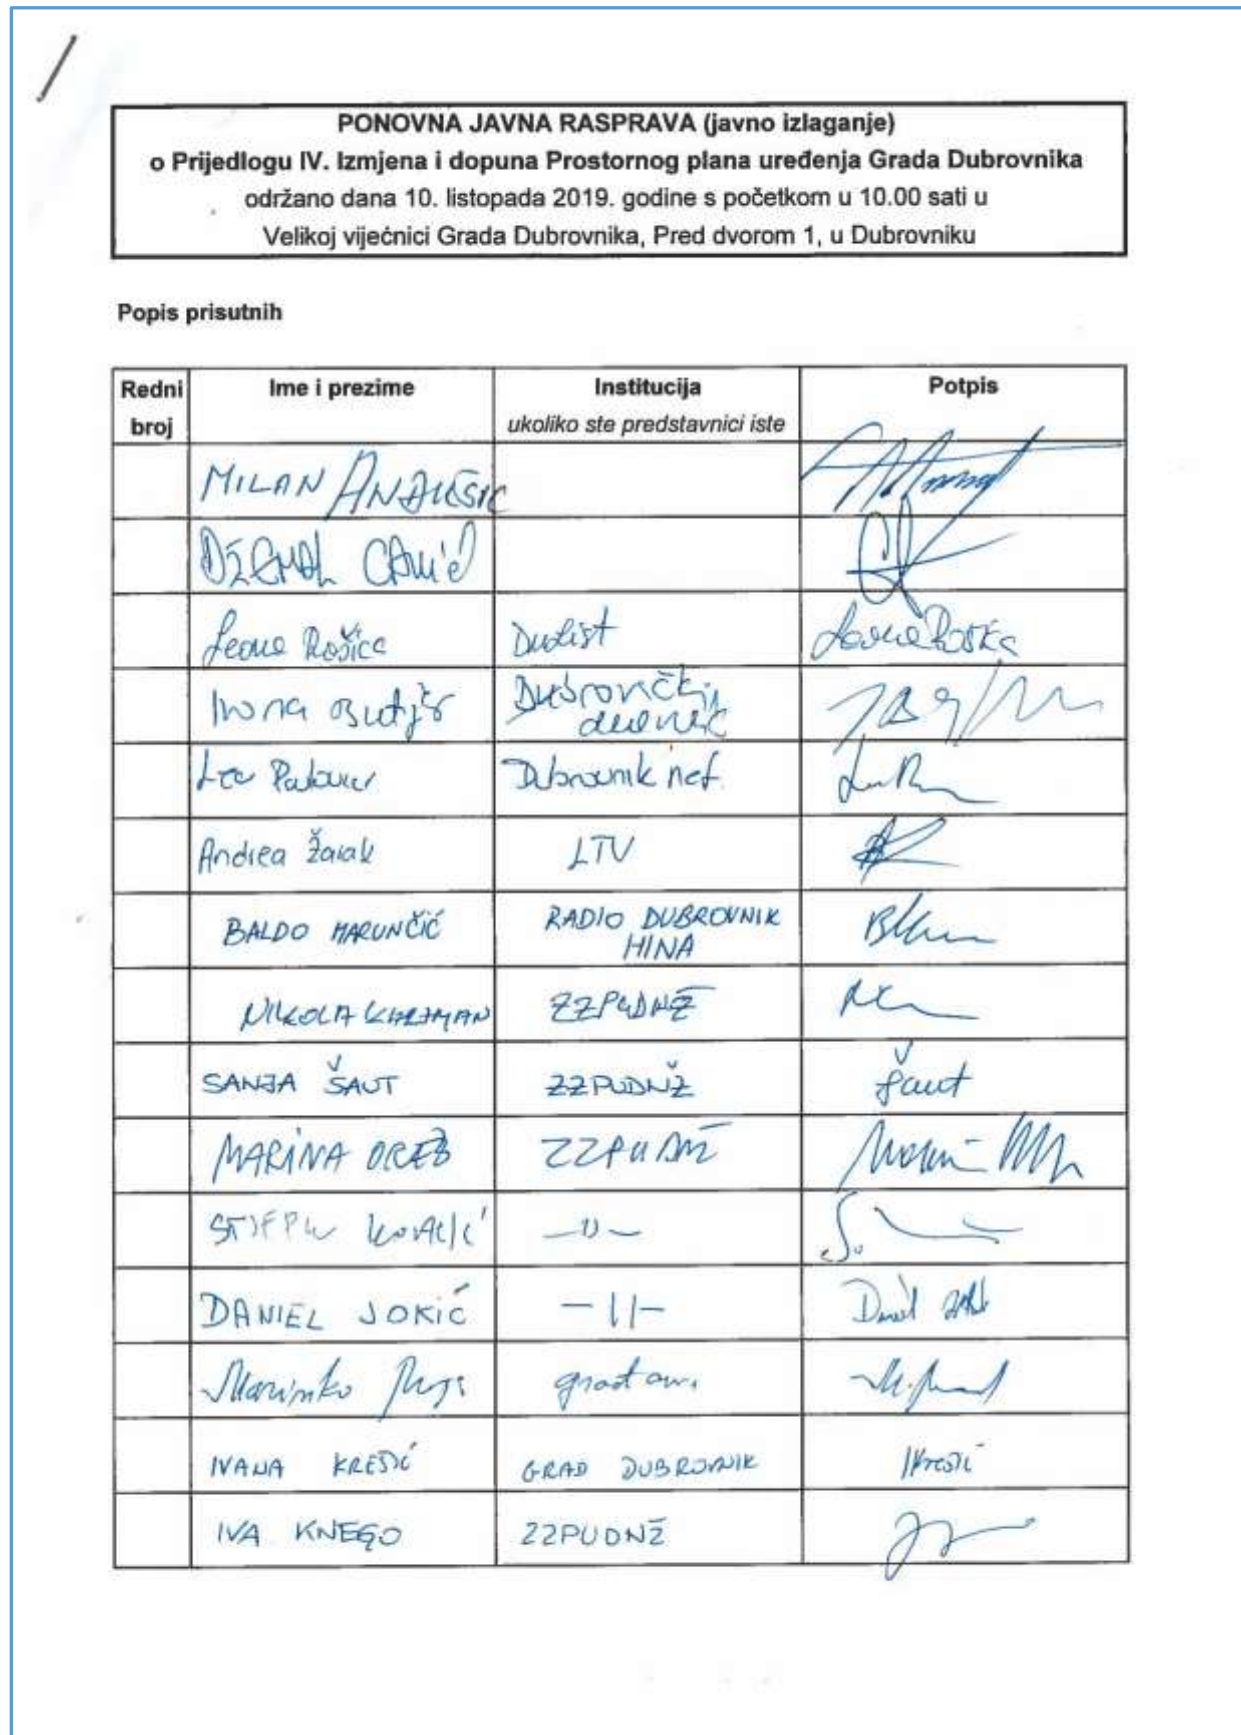 PONOVNA JAVNA RASPRAVA (javno izlaganje)
o Prijedlogu IV. Izmjena i dopuna Prostornog plana uređenja Grada Dubrovnika
održano dana 10. listopada 2019. godine s početkom u 10.00 sati u
Velikoj vijećnici Grada Dubrovnika, Pred dvorom 1, u Dubrovniku
Popis prisutnih
Redni broj Ime i prezime Institucija ukoliko ste predstavnici iste Potpis
MILAN
DŽEMAL
Dulist
Ivona Dubrovački dnevnik
Dubrovnik net
Andrea Žarak LTV
BALDO MARUNČIĆ RADIO DUBROVNIK HINA
NIKOLA ZZPUDNŽ
SANJA ŠAUT ZZPUDNŽ Šaut
MARINA OREB ZZPUDNŽ
—ıı—
DANIEL JOKIĆ —ıı—
Marinko
IVANA KRESIĆ GRAD DUBROVNIK IKresić
IVA KNEGO ZZPUDNŽ